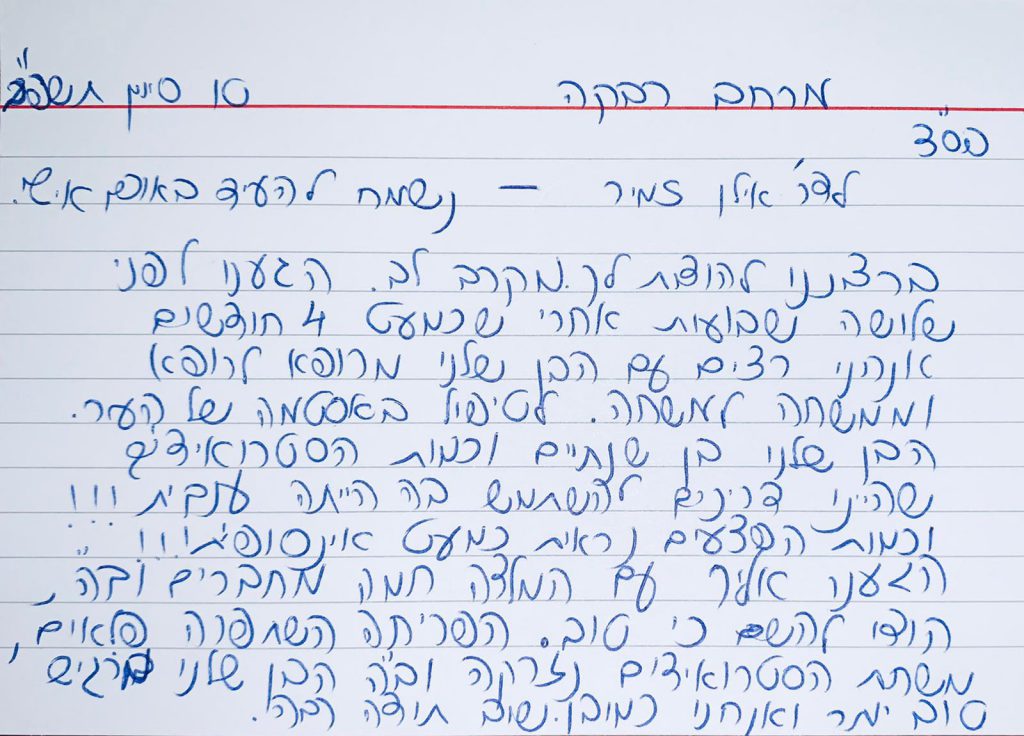 מרחב רבקה טו סיוון תשפ"ג
בס"ד
לדר' אילן זמיר — נשמח להעיד באופן אישי.
ברצוננו להודות לך מקרב לב. הגענו לפני
שלושה שבועות אחרי שכמעט 4 חודשים
אנחנו רצים עם הבן שלנו מרופא לרופא
וממשחה למשחה. לטיפול באסטמה של העור.
הבן שלנו בן שנתיים וכמות הסטרואידים
שהיינו צריכים להשתמש בה הייתה ענקית!!!
וכמות הפצעים נראית כמעט אינסופית!!!
הגענו אליך עם המלצה חמה מחברים וב"ה,
הודו להשם כי טוב. הפריחה השתפרה פלאים,
משחת הסטרואידים נזרקה וב"ה הבן שלנו מרגיש
טוב יותר ואנחנו כמובן. שוב תודה רבה!.